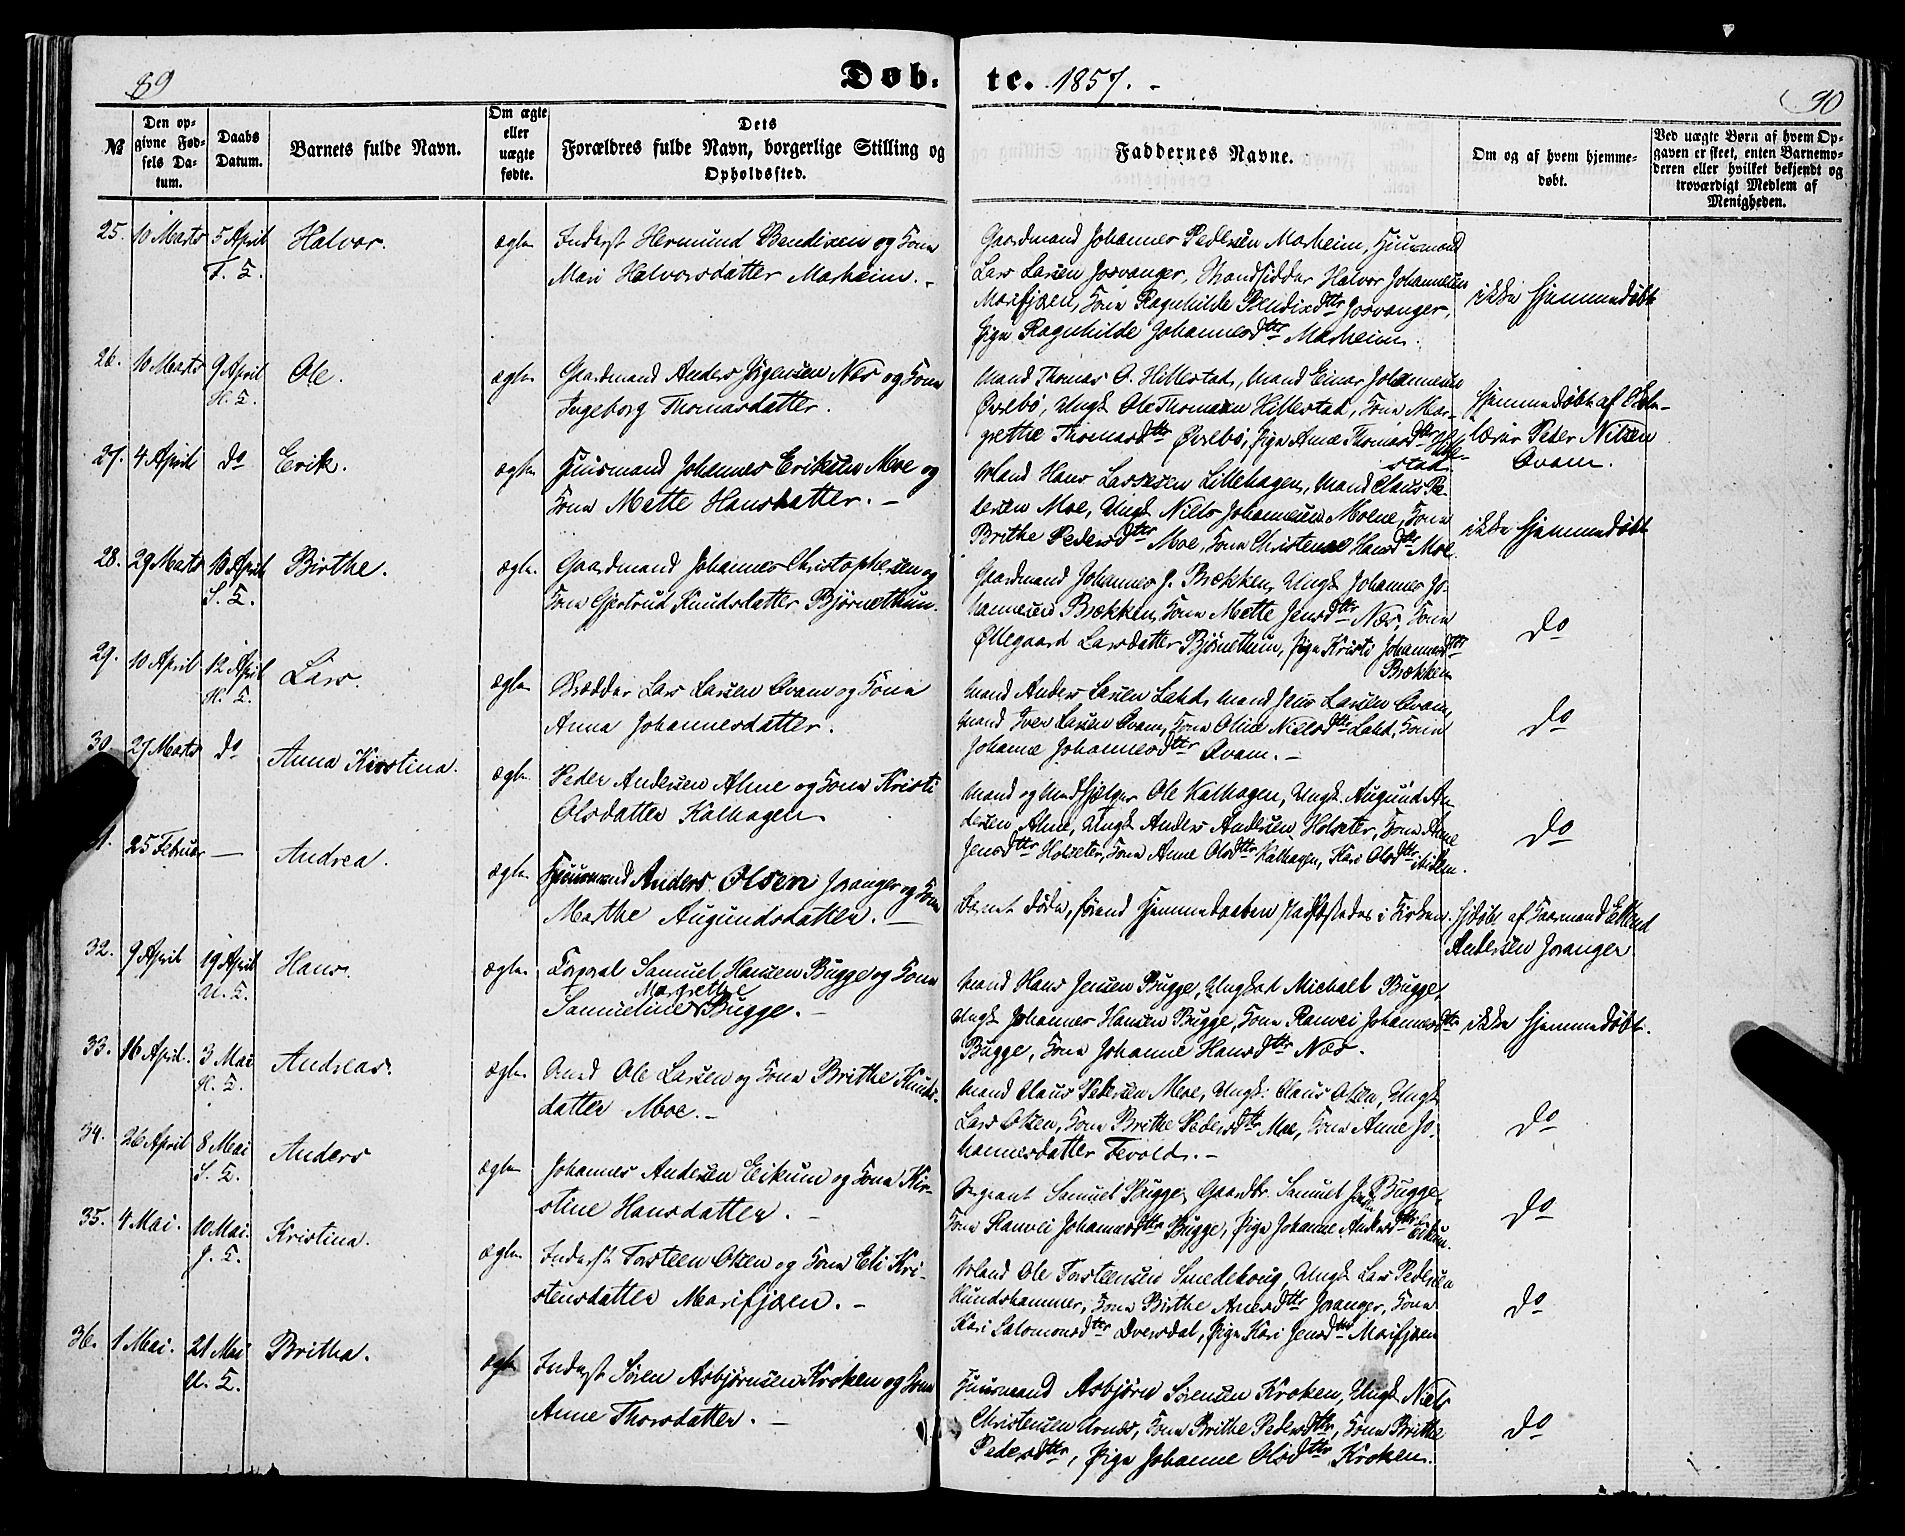 89
Døb-
te. 1857.-
90
№
Den opgivne Fødsels Datum.
Daabs Datum.
Barnets fulde Navn.
Om ægte eller uægte fødte.
Dets Forældres fulde Navn, borgerlige Stilling og Opholdssted.
Faddernes Navne.
Om og af hvem hjemmedøbt.
Ved uægte Børn af hvem Opgaven er skeet, enten Barnemoderen eller hvilket bekjendt og troværdigt Medlem af Menigheden.
25. 10 Marts 5 April Halvor. ægte Inderst Hermund Bendixen og Kona
Mari Halvorsdatter Marheim.-
Gaardmand Johannes Pedersen Marheim, Huusmand
Lars Larsen Josvanger, Strandsidder Halvor Johannesen
Marifjæren, Kona Ragnhilde Bendixdtr Josvanger,
Pige Ragnhilde Johannesdtr Marheim.
ikke hjemmedøbt
26. 10 Marts 9 April Ole. ægte Gaardmand Anders Jørgensen Næs og Kona
Ingeborg Thomasdatter.
Mand Thomas O. Hillestad, Mand Einar Johannesen
Øvrebø, Ungk Ole Thomasen Hillestad, Kona Mar-
grethe Thomasdtr Øvrebø, Pige Anna Thomasdtr Hille-
stad.
hjemmedøbt af Skole-
lærer Peter Nilsen
Qvam.
27. 4 April do Erik. ægte Huusmand Johannes Eriksen Moe og
Kona Mette Hansdatter.-
Mand Hans Lassesen Lillehagen, Mand Claus Pe-
dersen Moe, Ungk Niels Johannesen Molne, Kona
Brithe Pedersdtr Moe, Kona Christense Hansdtr Moe.
ikke hjemmedøbt
28. 29 Marts 10 April Birthe. ægte Gaardmand Johannes Christophersen og
Kona Gjertrud Knudsdatter Bjørnethun.
Gaardmand Johannes J. Brækken, Ungk Johannes Jo-
hannesen Brækken, Kona Mette Jensdtr Næs, Kona
Øllegaard Larsdatter Bjørnethun, Pige Kristi Johannesdtr
Brækken
do
29. 10 April 12 April Lars. ægte Lars Larsen Qvam og Kona
Anna Johannesdatter.
Mand Anders Larsen Lahd, Mand Jens Larsen Qvam,
Mand Iver Larsen Qvam, Kona Oline Nielsdtr Lahd, Kona
Johanne Johannesdtr Qvam.-
do
30. 27 Marts do Anna Kirstina. ægte Peder Andersen Alme og Kona Kristi
Olsdatter Kalhagen
Mand og Medhjelper Ole Kalhagen, Ungk. Augund An-
dersen Alme, Ungk Anders Andersen Holseter, Kona Anne
Jensdtr Holseter, Kona Anne Olsdtr Kalhagen, Kari Olsdtr
do
31. 25 Februar — Andrea. ægte Huusmand Anders Olsen Joranger og Kona
Marthe Augundsdatter.-
Barnet døde, førend Hjemmedaaben stadfæstedes i Kirken.
Hjdøbt af Gaarmand Erlend
Andersen Joranger
32. 9 April 19 April Hans. ægte Corporal Samuel Hansen Bugge og Kona
Margrethe
Samueline Bugge.-
Mand Hans Jensen Bugge, Ungkarl Michael Bugge,
Ungk Johannes Hansen Bugge, Kona Ranvei Johannesdtr
Bugge, Kona Johanne Hansdtr Næs.
ikke hjemmedøbt.
33. 16 April. 3 Mai Andreas. ægte Ole Larsen og Kona Brithe Knuds-
datter Moe.-
Mand Claus Pedersen Moe, Ungk: Claus Olsen, Ungk
Lars Olsen, Kona Brithe Pedersdtr Moe, Kona Anne Jo-
hannesdatter Tevold.-
do
34. 26 April 8 Mai Anders ægte Johannes Andersen Eikum og Kona Kir-
stine Hansdatter.-
Sergeant Samuel Bugge, Gaardbr. Samuel Bugge,
Kona Ranvei Johannesdtr Bugge, Pige Johanne Andersdtr Eikum.
do
35. 4 Mai. 10 Mai. Kristina. ægte Inderst Torsteen Olsen og Kona Eli Kri-
stensdatter Marifjæren.-
Mand Ole Torsteensen Smedehoug, Ungk Lars Pedersen
Hundshammer, Kona Birthe Joranger, Kona
Kari Salomonsdtr Dversdal, Pige Kari Jensdtr Marifjæren
do
36. 1 Mai. 21 Mai Britha. ægte Inderst Søren Asbjørnsen Kroken og Kona
Anne Thorsdatter.-
Huusmand Asbjørn Sørensen Kroken, Ungk Niels
Christensen Urnæs, Kona Brithe Pedersdtr, Kona Brithe
Pedersdtr, Pige Johanne Olsdtr Kroken.
do